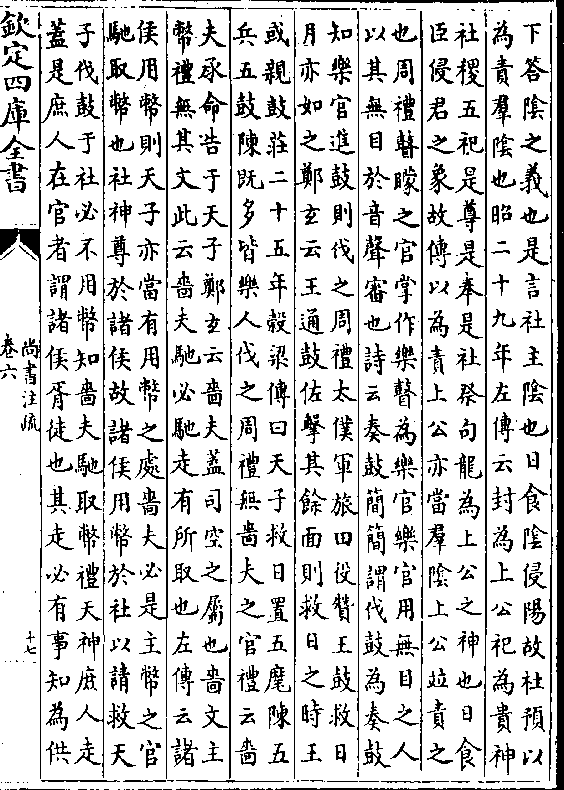 下答陰之義也是言社主陰也日食陰侵陽故社預以
為責羣陰也昭二十九年左傳云封為上公祀為貴神
社稷五祀是尊是奉是社祭句龍為上公之神也日食
臣侵君之象故傳以為責上公亦當羣陰上公竝責之
也周禮瞽矇之官掌作樂瞽為樂官樂官用無目之人
以其無目於音聲審也詩云奏鼓簡簡謂伐鼓為奏鼓
知樂官進鼓則伐之周禮太僕軍旅田役贊王鼓救日
月亦如之鄭玄云王通鼓佐擊其餘面則救日之時王
或親鼓莊二十五年穀梁傳曰天子救日置五麾陳五
兵五鼓陳既多皆樂人伐之周禮無嗇夫之官禮云嗇
夫承命告于天子鄭玄云嗇夫蓋司空之屬也嗇文主
幣禮無其文此云嗇夫馳必馳走有所取也左傳云諸
侯用幣則天子亦當有用幣之處嗇夫必是主幣之官
馳取幣也社神尊於諸侯故諸侯用幣於社以請救天
子伐鼓于社必不用幣知嗇夫馳取幣禮天神庶人走
蓋是庶人在官者謂諸侯胥徒也其走必有事知為供
欽定四庫全書
尚書注疏
卷六
十七